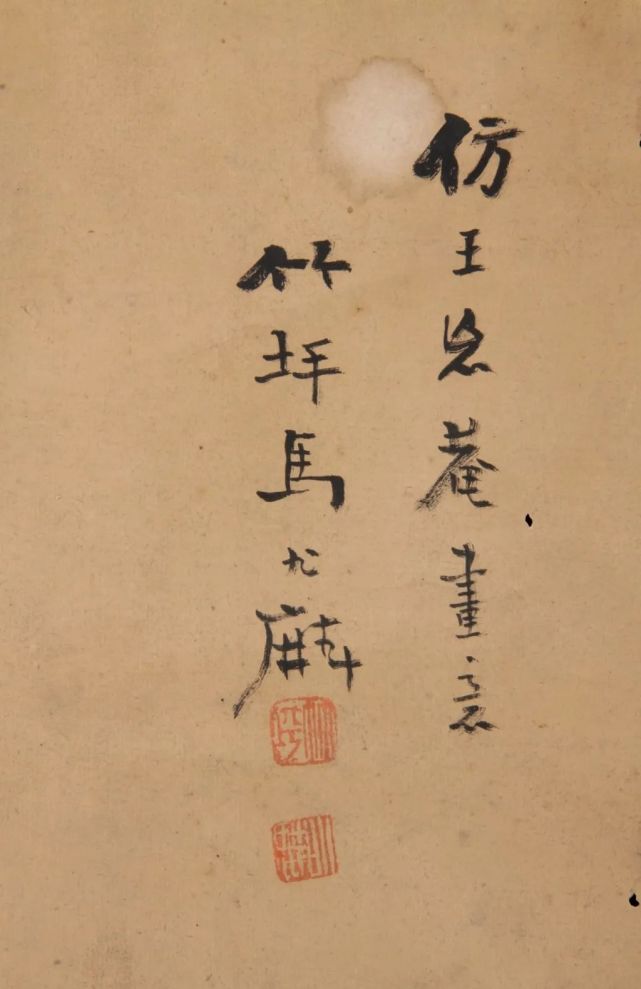 仿王忘菴畫意
竹坪馬九麟